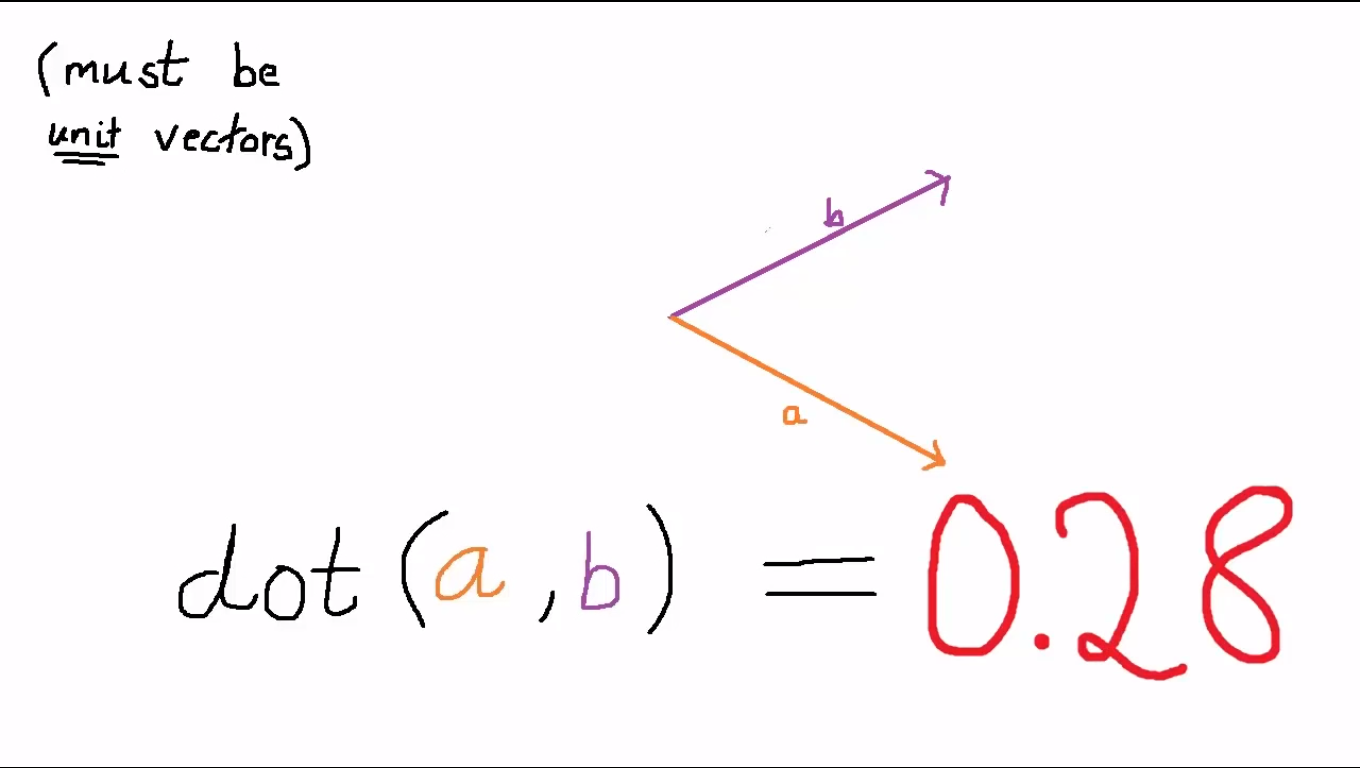 (must be
unit vectors)
b
a
dot(a,b) = 0.28